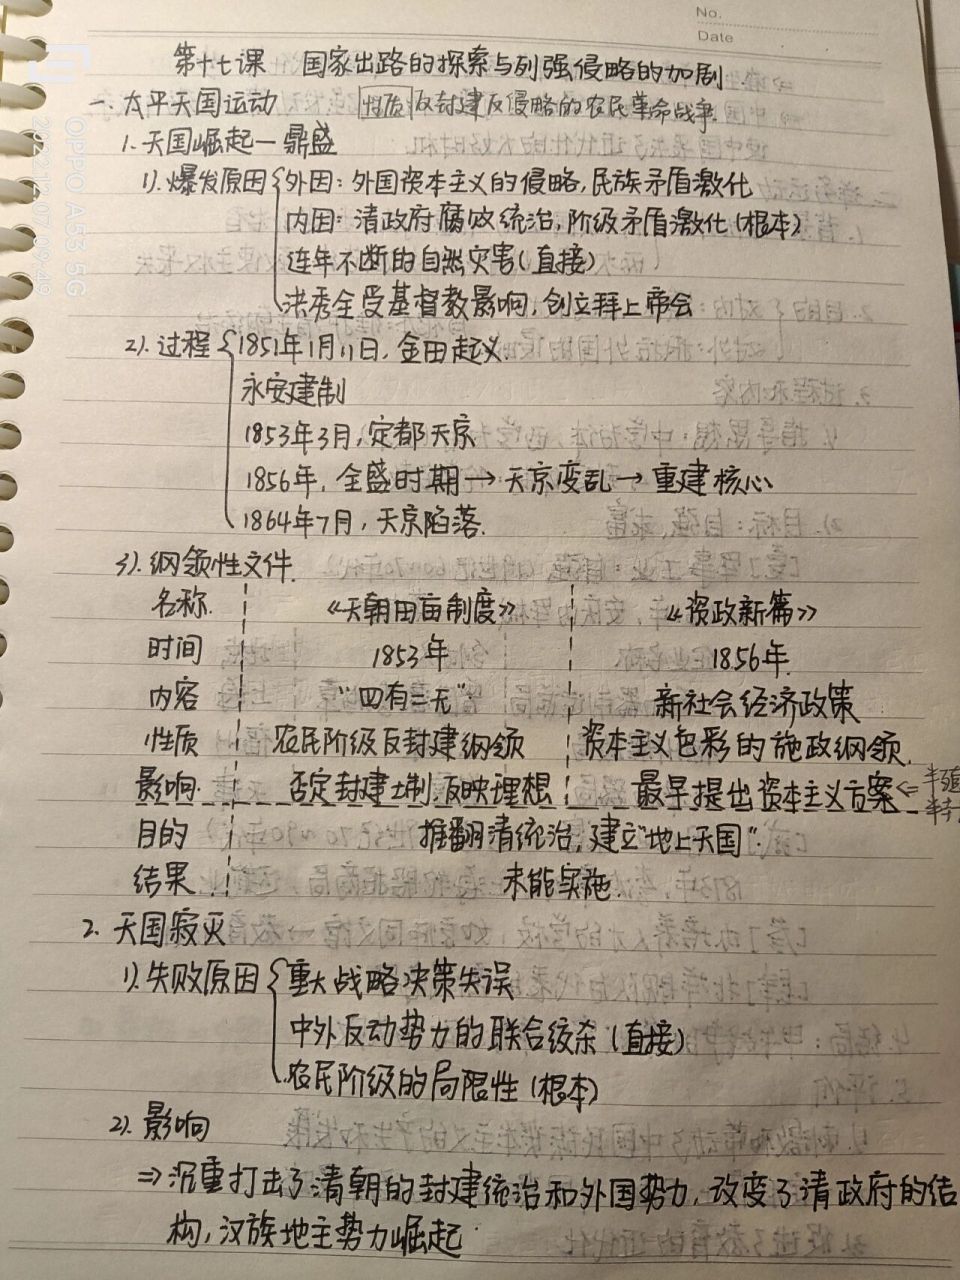 No.
Date
第十七课 国家出路的探索与列强侵略的加剧
一、太平天国运动 性质 反封建反侵略的农民革命战争.
1.天国崛起—鼎盛
1).爆发原因 外因:外国资本主义的侵略,民族矛盾激化
内因:清政府腐败统治,阶级矛盾激化(根本)
连年不断的自然灾害(直接)
洪秀全受基督教影响,创立拜上帝会
2).过程 1851年1月11日,金田起义.
永安建制
1853年3月,定都天京
1856年,全盛时期→天京变乱→重建核心
1864年7月,天京陷落.
3).纲领性文件.
名称. 《天朝田亩制度》 《资政新篇》
时间 1853年 1856年.
内容 "四有三无". 新社会经济政策
性质 农民阶级反封建纲领 资本主义色彩的施政纲领.
影响. 否定封建土制,反映理想 最早提出资本主义方案⇐半殖
半封
目的 推翻清统治,建立"地上天国".
结果 未能实施.
2.天国寂灭
1).失败原因 重大战略决策失误
中外反动势力的联合绞杀(直接)
农民阶级的局限性(根本)
2).影响
⇒沉重打击了清朝的封建统治和外国势力,改变了清政府的结
构,汉族地主势力崛起.
OPPO A53 5G
2022.12.07 09:49